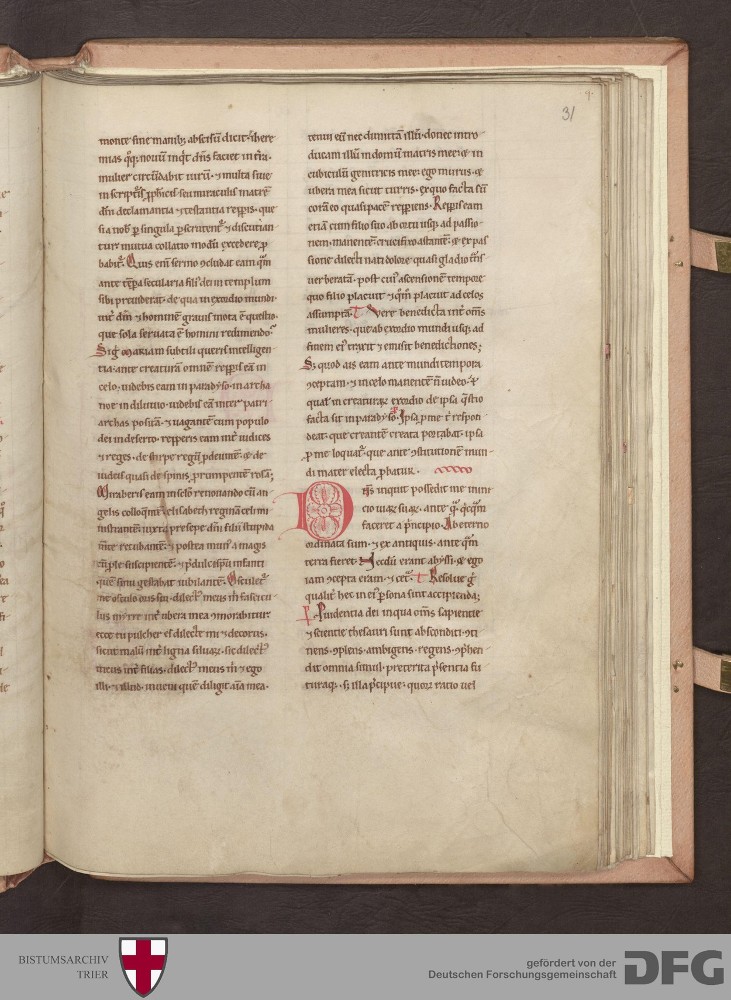 31
monte sine manib; abscisū dicit᷑. ihere
mias q̊q; nouū inq̇t dn̄s faciet in tr̄a.
mulier circūdabit uirū. ⁊ multa siue
in scriptis ꝓphicis seu miraculis matrē
dn̄i declamantia ⁊ testantia repp̄is. que
si a nob̄ ꝑ singula ꝑscrutent᷑ ⁊ discutian
tur mutua collatio modū excedere ꝓ
babit᷑. Quis em̄ sermo ꝯcludat eam q̄m
ante tēpa secularia fili᷒ dei in templum
sibi preuiderat. de qua in exordio mundi
int̄ dm̄ ⁊ hominē grauis mota ē questio.
que sola seruata ē homini redimendo.
Si g̊ Mariam subtili queris intelligen
tia. ante creaturā omnem repp̄is eā in
celo. uidebis eam in paradyso. in archa
noe in diluuio. uidebis eā inter patri
archas positā. ⁊ uagantē cum populo
dei in deserto. repperis eam int̄ iudices
⁊ reges. de stirpe regū ꝓdeuntē. ⁊ de
iudeis quasi de spinis ꝓrumpentē rosā;
Miraberis eam in celo renouando cū an
gelis colloqm̄ ⁊ elisabeth reginā celi mi
nistrantē. iuxta presepe dn̄i filii stupida
m̄te recubantē. ⁊ postea mun᷒a a magis
suscipientē. ⁊ p̄dulcissimū infanti
quē sinu gestabat iubilantē. Osculet᷑
me osculo oris sui. dilect᷒ meus m̄ fascicu
lus myrre int̄ ubera mea ꝯmorabitur.
ecce tu pulcher es dilecte mi ⁊ decorus.
sicut malū int̄ ligna siluaꝝ. sic dilect᷒
meus int̄ filios. dilect᷒ meus m̄ ⁊ ego
illi. ⁊ illud. inueni quē diligit aīa mea.
tenui eū nec dimittā illū. donec intro
ducam illū in domū matris mee. ⁊ in
cubiculū genitricis mee. ego murus. ⁊
ubera mea sicut turris. ex quo facta sū
corā eo quasi pacē repp̄iens. Repp̄is eam
etiā cum filio suo ab ortu usq; ad passio
nem. manentē. crucifixo astantē. ⁊ ex pas
sione dilecti nati dolore quasi gladio
uerberatā. post cui᷒ ascensionē tempore
quo filio placuit ⁊ q̄m placuit ad celos
assumptā. Vere benedicta int̄ om̄s
mulieres. que ab exordio mundi usq; ad
finem ei᷒ traxit ⁊ emisit benedictiones;
S; quod ais eam ante mundi tempora
ꝯceptam. ⁊ in celo manentē n̄ uideo. ⁊
qualit᷑ in creaturaꝝ exordio de ipsa q̄stio
facta sit in paradyso. Ipsa ꝓ me t̄ respon
deat. que creantē creata portabat. ipsa
ꝓ me loquat᷑. que ante ꝯstitutionē mun
di mater electa ꝓbatur.
Dn̄s inquit possedit me inini
cio uiaꝝ suaꝝ. ante qͣ q̇cqͣm
faceret a pͥncipio. Ab eterno
ordinata sum. ⁊ ex antiquis. ante qͣm
terra fieret. Necdū erant abyssi. ⁊ ego
iam ꝯcepta eram. ⁊ cet̄. Resolue g̊
qualit᷑ hec in ei᷒ ꝑsona sunt accipienda;
Prudentia dei in qua om̄s sapientie
⁊ scientie thesauri sunt absconditi. ꝯti
nens. ꝯplens. ambigens. regens. ꝯp̄hen
dit omnia simul. preterita p̄sentia fu
turaq;. s; illa p̄cipue. quoꝝ ratio uel
BISTUMSARCHIV
TRIER
gefördert von der
Deutschen Forschungsgemeinschaft
DFG